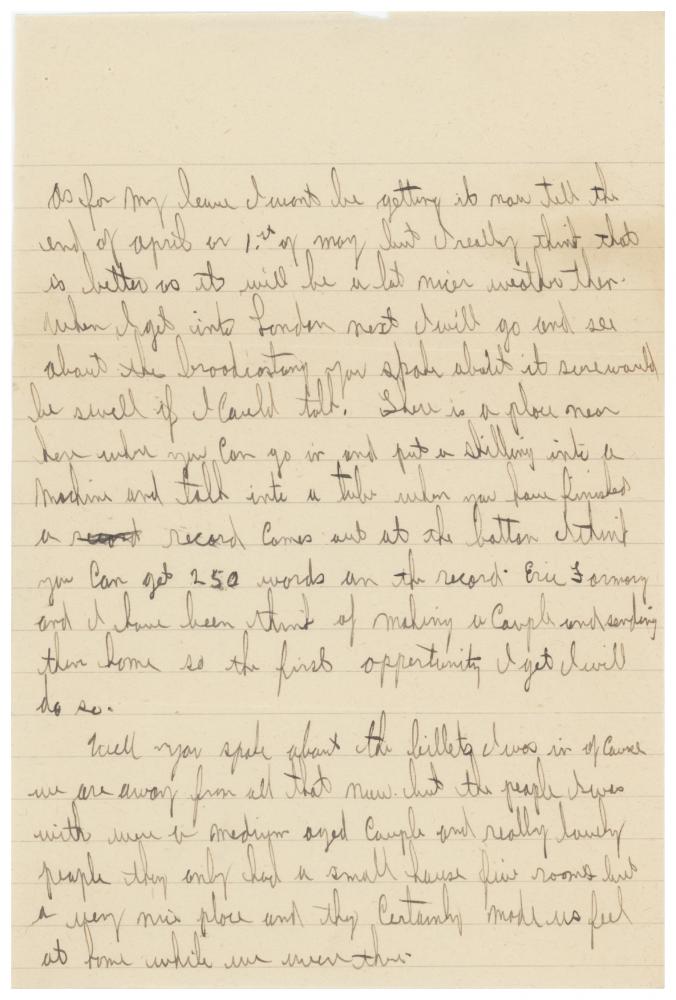 as for my leave I wont be getting it now tell the
end of april or 1.st of may but I really think that
is better as it will be a lot nicer weather then.
when I get into London next I will go and see
about the broadcasting you spoke about it sure would
be swell if I could talk. There is a place near
here where you can go in and put a shilling into a
machine and talk into a tube when you have finished
a record comes out at the bottom I think
you can get 250 words on the record. Eric
and I have been think of making a couple and sending
them home so the first opportunity I get I will
do so.
Well you spoke about the billets I was in of cause
we are away from all that now. but the people I was
with were a medium aged couple and really lovely
people they only had a small house five rooms but
a very nice place and they certainly made us feel
at home while we were there.